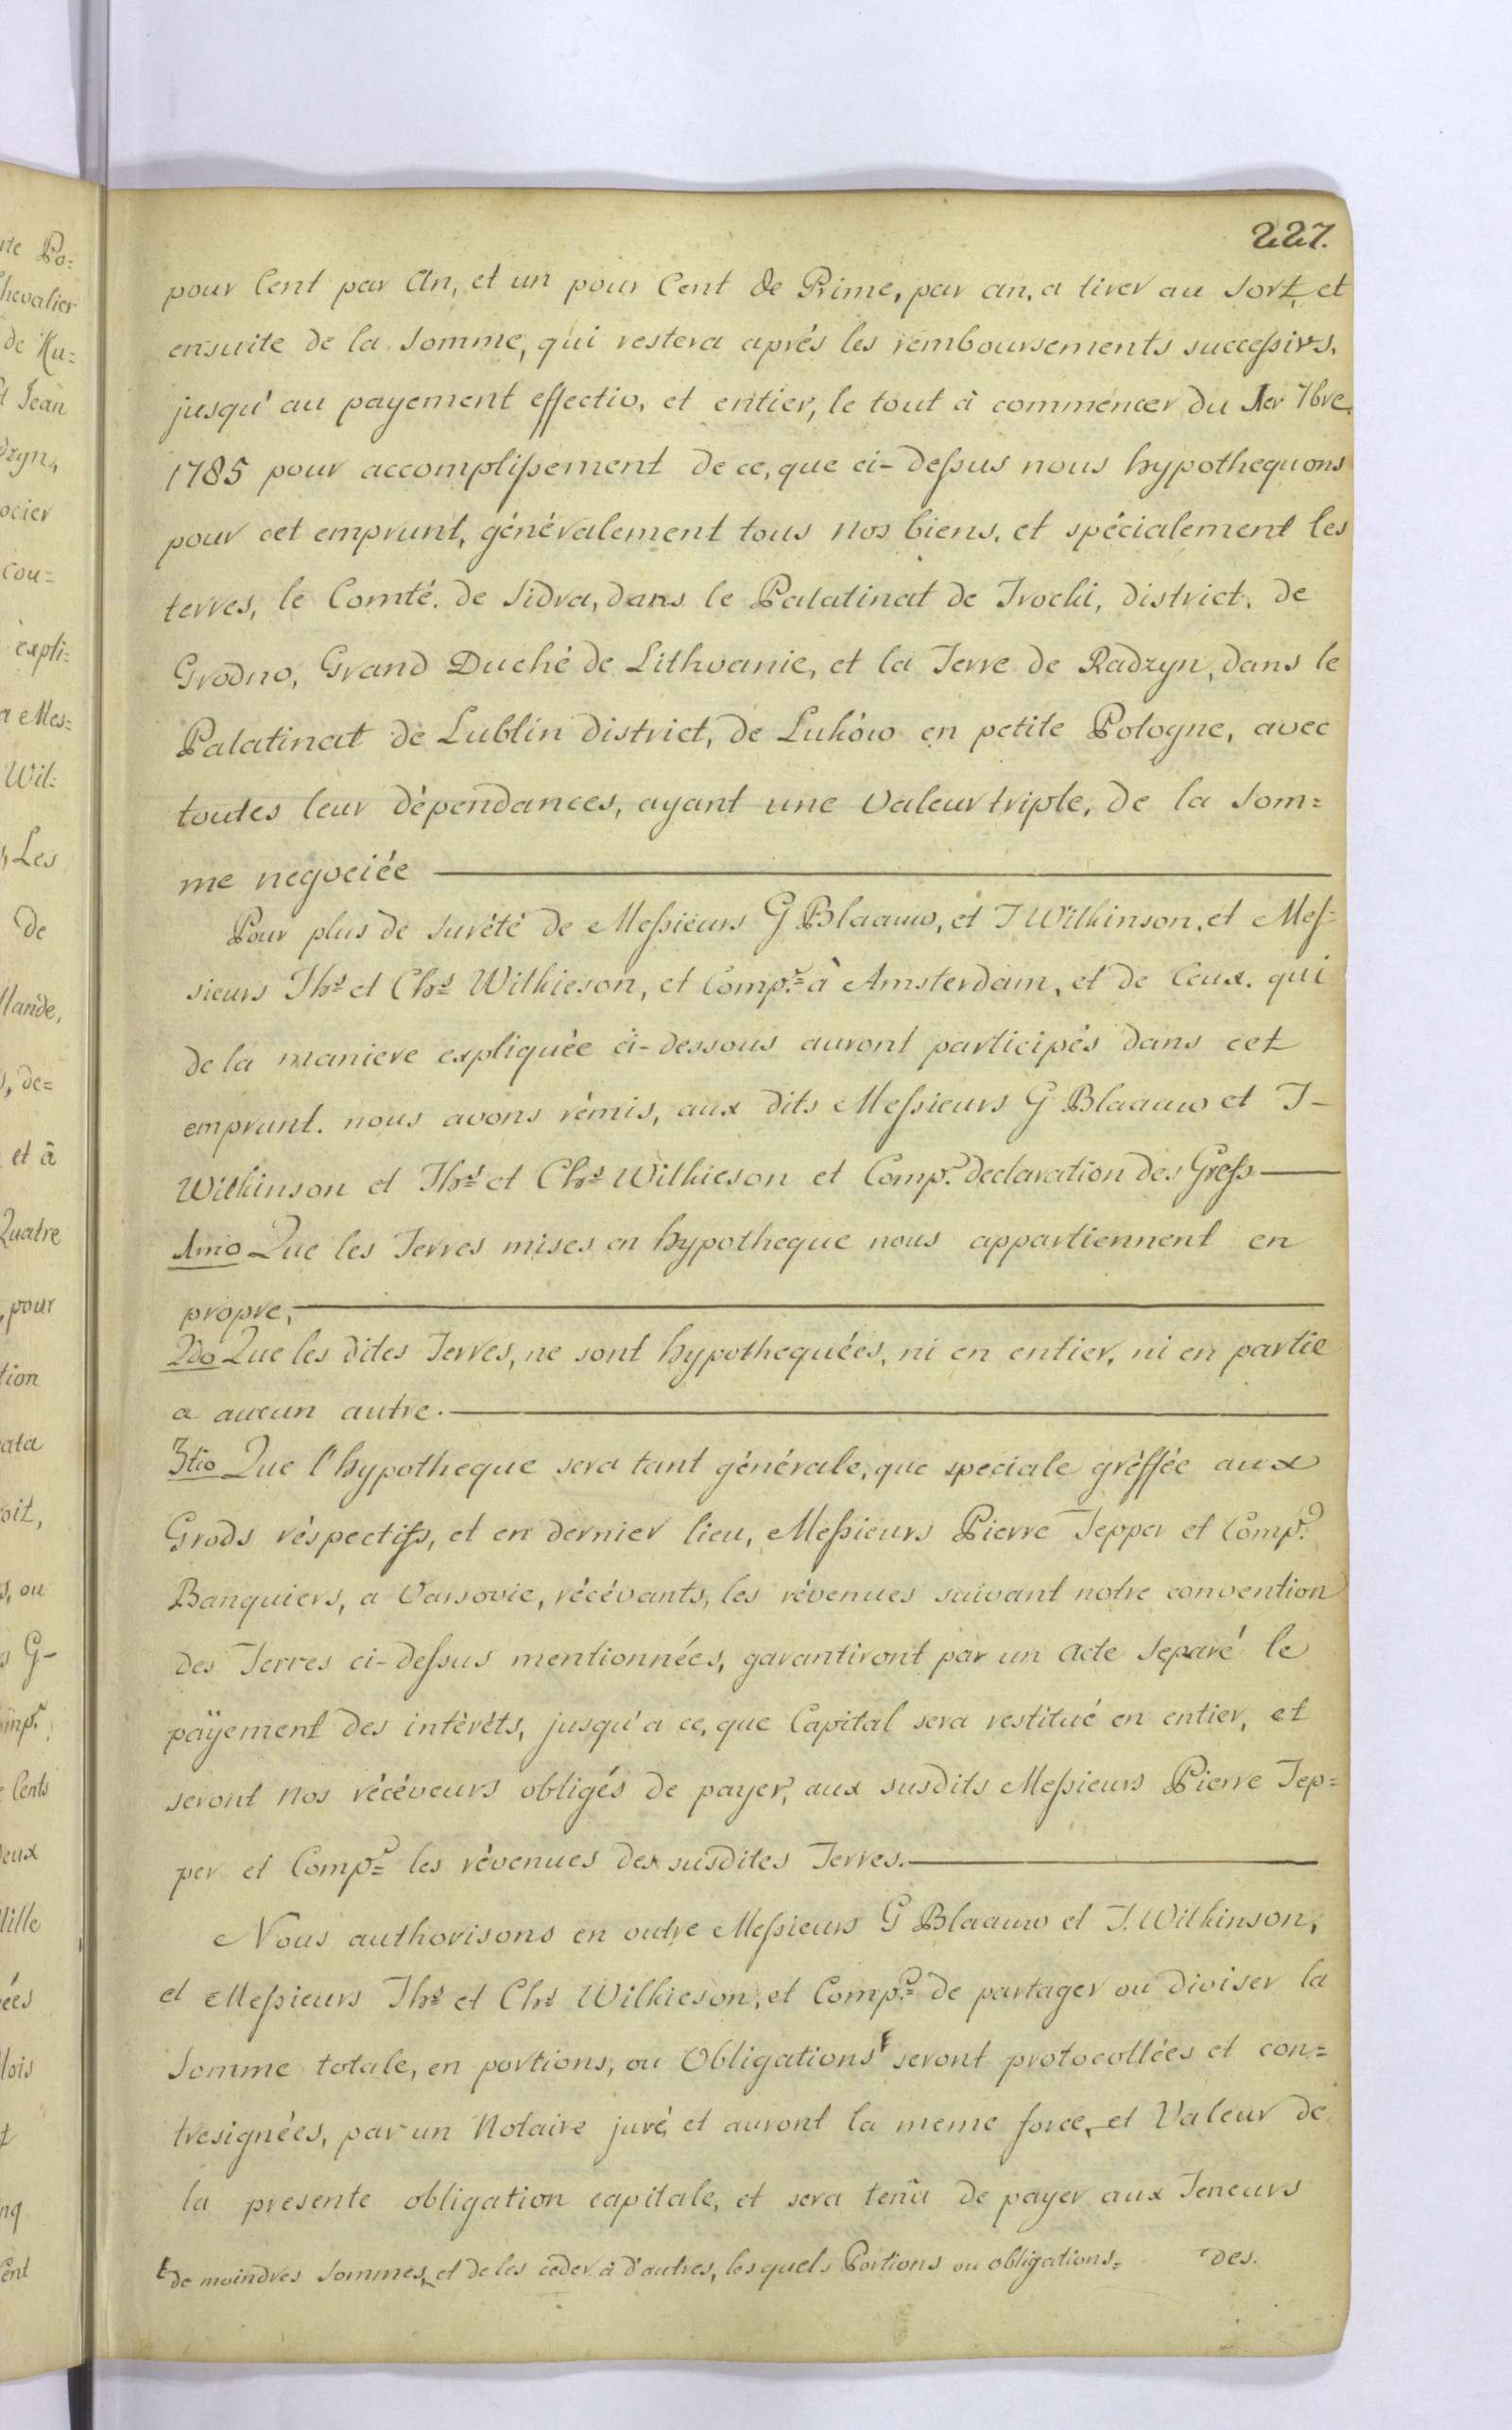 227.
pour Cent par An, et un pour Cent de Prime, par an, a tirer au sort, et
ensuite de la somme, qui restera aprés les remboursements successivs,
jusqu'au payement effectiv, et entier, le tout à commencer du 1er 7bre.
1785 pour accomplissement de ce, que ci-dessus nous hypothequons
pour cet emprunt, générallement tous nos biens, et spécialement les
terres, le Comté. de Sidra, dans le Palatinat de Trocki, district. de
Grodno, Grand Duché de Lithvanie, et la Terre de Radzyn, dans le
Palatinat de Lublin district, de Lukòw en petite Pologne, avec
toutes leur dépendances, ayant une valeur triple, de la Som=
me negociée
Pour plus de surété de Messieurs G Blaauw, et J Wilkinson, et Mes=
sieurs Ths et Chs Wilkieson, et Comp. à Amsterdam, et de Ceux. qui
de la maniere expliquée ci-dessous auront participés dans cet
emprunt. nous avons rémis, aux dits Messieurs G Blaauw et J-
Wilkinson et Ths et Chs Wilkieson et Comp. declaration des Gress
1mo Que les Terres mises en hypotheque nous appartiennent en
propre,
2do Que les dites Terres, ne sont hypothequées, ni en entier, ni en partie
a aucun autre.
3tio Que l'hypotheque sera tant générale, que speciale gréffée aux
Grods réspectifs, et en dernier lieu, Messieurs Pierre Tepper et Comp.
Banquiers, a Varsovie, récévants, les révenues suivant notre convention
des Terres ci-dessus mentionnées, garantiront par un acte separé le
päyement des intéréts, jusqu'a ce, que Capital sera restitué en entier, et
seront nos récéveurs obligés de payer, aux susdits Messieurs Pierre Tep=
per et Comp. les révenues des susdites Terres.
Nous authorisons en outre Messieurs G Blaauw et J. Wilkinson,
et Messieurs Ths et Chs Wilkieson, et Comp. de partager ou diviser la
Somme totale, en portions, ou Obligations seront protocollées et con=
tresignées, par un Notaire juré, et auront la meme force, et Valeur de
la presente obligation capitale, et sera tenû de payer aux Teneurs
de moindres Sommes, et de les ceder à d'autres, les quels Portions ou obligations= des.